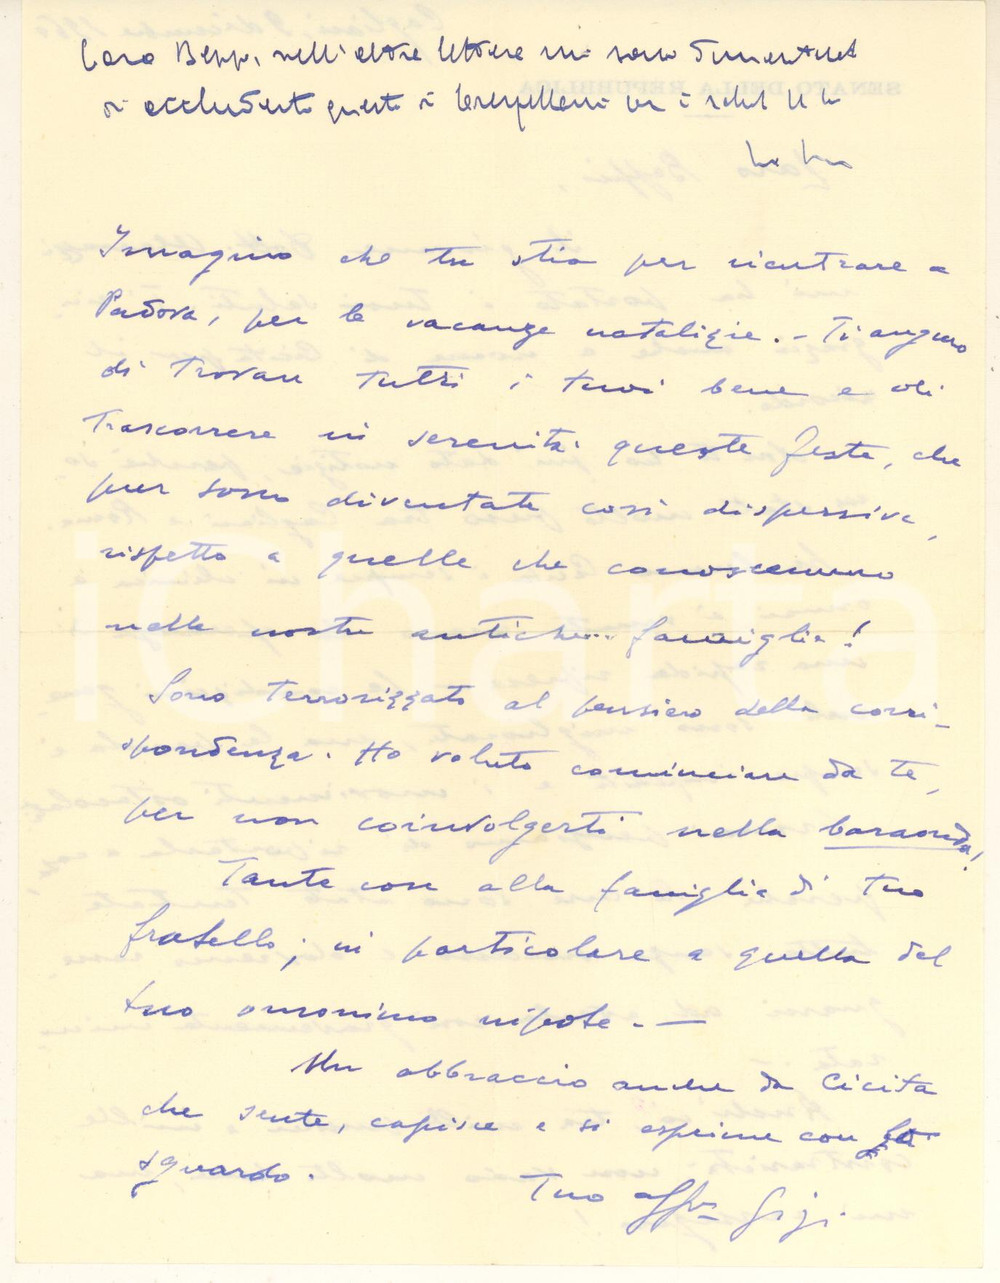 Caro Beppi, nell'altra lettera mi sono dimenticat
di accluderti questi
Immagino che tu stia per rientrare a
Padova, per le vacanze natalizie. - Ti auguro
di trovare tutti i tuoi bene e di
trascorrere in serenità queste feste, che
pur sono diventate così dispersive,
rispetto a quelle che conoscemmo
nelle nostre antiche... famiglie!
Sono terrorizzato al pensiero della corri-
spondenza. Ho voluto cominciare da te,
per non coinvolgerti nella baraonda!
Tante cose alla famiglia di tuo
fratello; in particolare a quella del
tuo omonimo nipote. —
Un abbraccio anche da Cicita
che sente, capisce e si esprime con lo
sguardo.
Tuo aff.mo Gigi.
iCharta